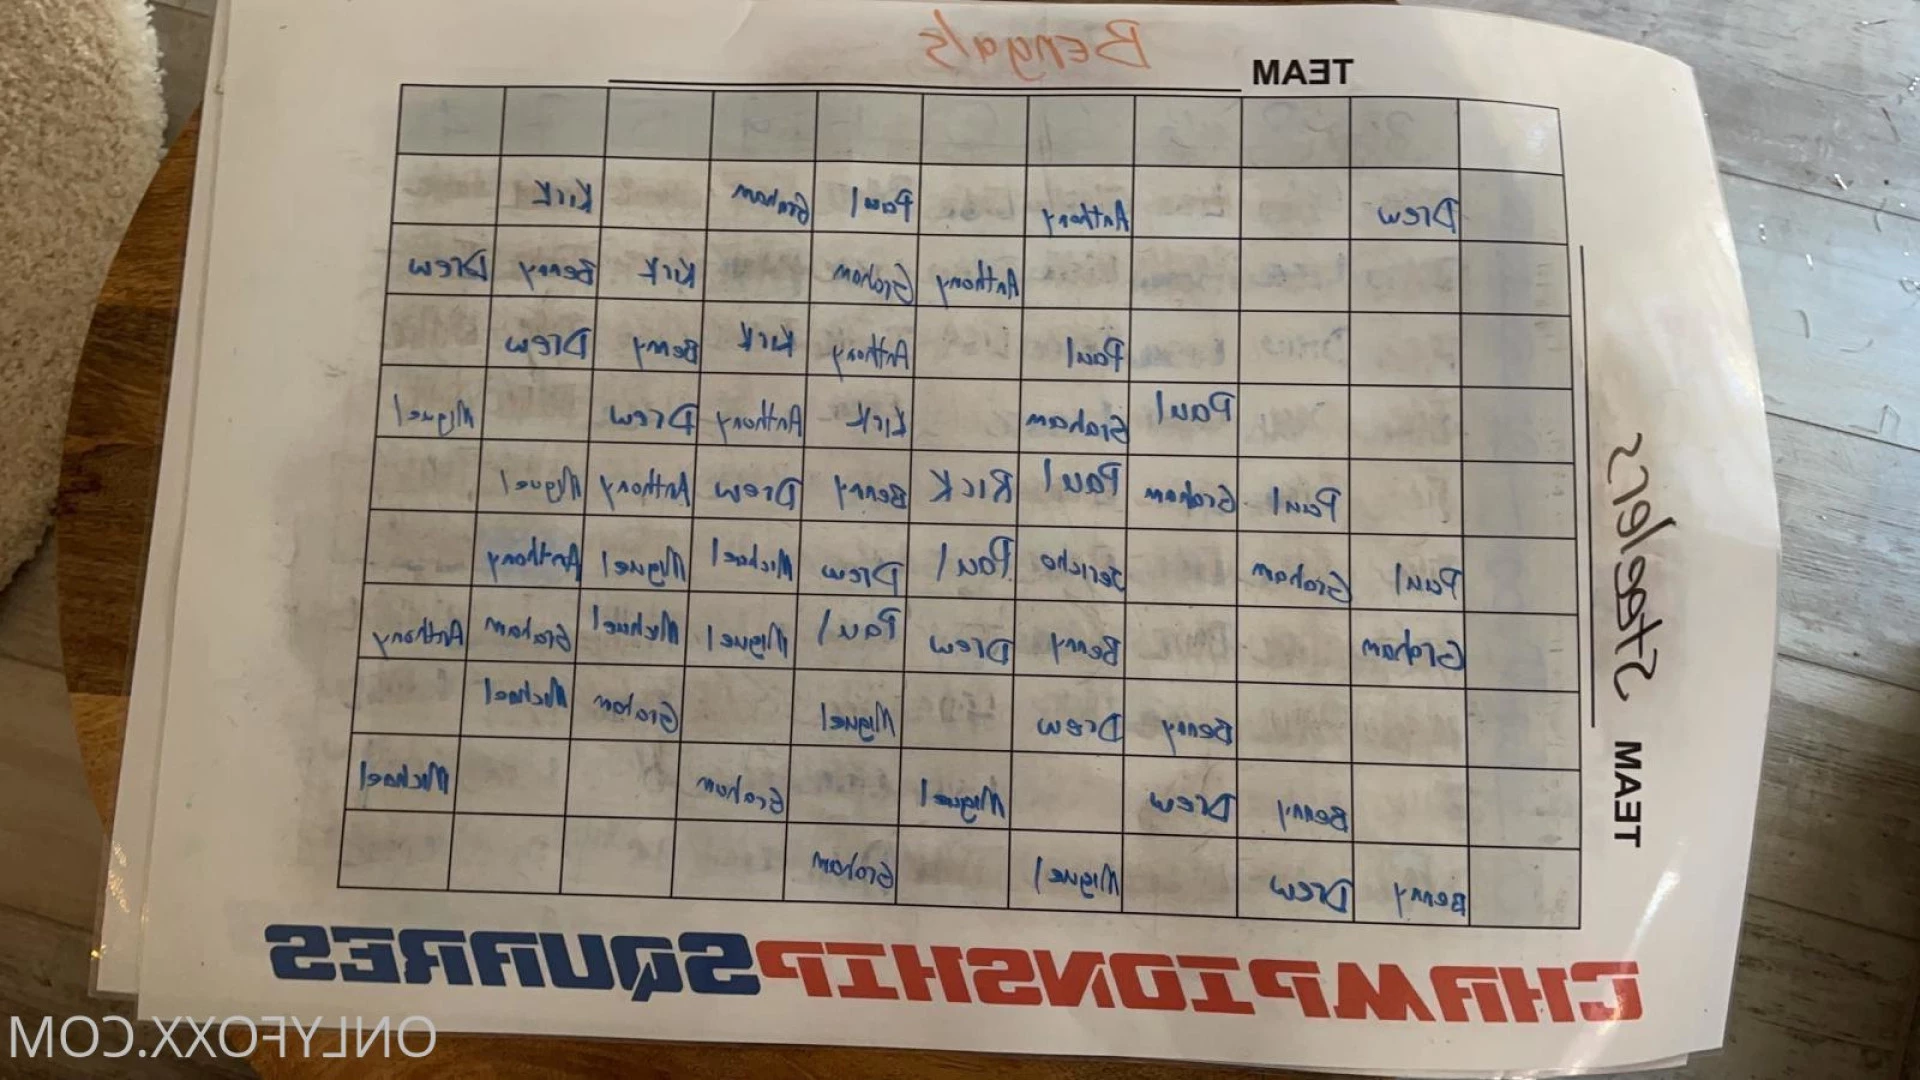 TEAM Bengals
Drew Anthony Paul Graham Rick
Anthony Graham Rick Benny Drew
Paul Anthony Rick Benny Drew
Paul Graham Rick Anthony Drew Miguel
Paul Graham Paul Rick Benny Drew Anthony Miguel
Paul Graham Jericho Paul Drew Michael Miguel Anthony
Graham Benny Drew Paul Miguel Michael Graham Anthony
Benny Drew Miguel Graham Michael
Benny Drew Miguel Graham Michael
Benny Drew Miguel Graham
TEAM Steelers
CHAMPIONSHIP SQUARES
ONLYFOXX.COM